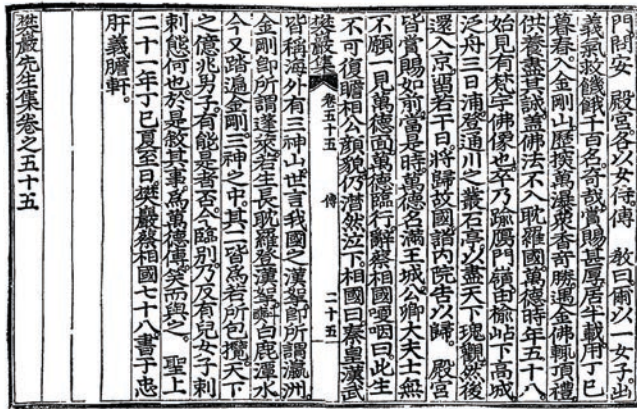 門問安 殿宮各以女侍傅 敎曰爾以一女子出
義氣救饑餓千百名奇哉賞賜甚厚居半載用丁巳
暮春入金剛山歷探萬瀑衆香奇勝遇金佛輒頂禮
供養盡其誠盖佛法不入耽羅國萬德時年五十八
始見有梵宇佛像也卒乃踰鴈門嶺由楡岾下高城
泛舟三日浦登通川之叢石亭以盡天下瑰觀然後
還入京留若干日將歸故國詣內院告以歸 殿宮
皆賞賜如前當是時萬德名滿王城公卿大夫士無
不願一見萬德面萬德臨行辭蔡相國哽咽曰此生
不可復瞻相公顔貌仍潸然泣下相國曰秦皇漢武
樊巖集 卷五十五 傳 二十五
皆稱海外有三神山世言我國之漢拏卽所謂瀛洲
金剛卽所謂蓬萊若生長耽羅登漢拏㪺白鹿潭水
今又踏遍金剛三神之中其二皆爲若所包攬天下
之億兆男子有能是者否今臨別乃反有兒女子刺
刺態何也於是叙其事爲萬德傳笑而與之 聖上
二十一年丁巳夏至日樊巖蔡相國七十八書于忠
肝義膽軒
樊巖先生集卷之五十五